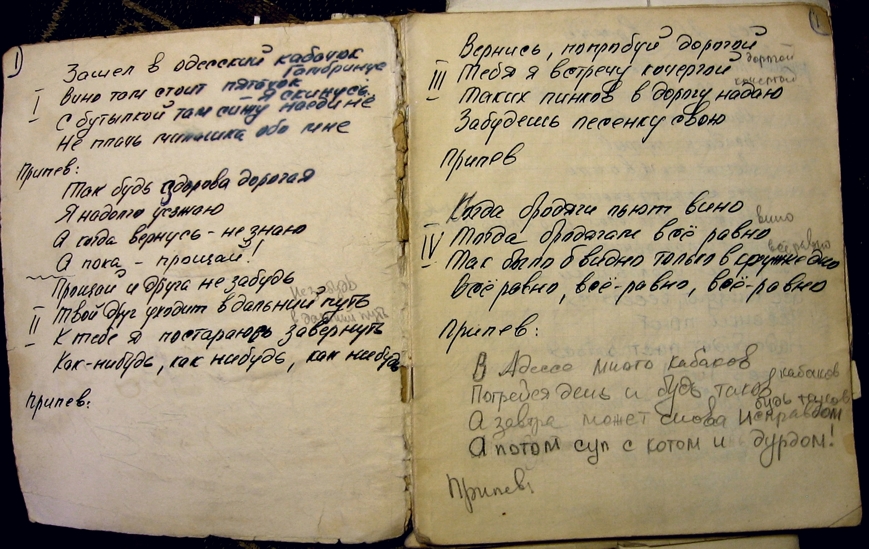 1
Зашел в одесский кабачок
Гамбринус
I Вино там стоит пятачок
Я скинусь
С бутылкой там сижу наедине
Не плачь обо мне
Припев:
Так будь здорова дорогая
Я надолго уезжаю
А когда вернусь - не знаю
А пока - прощай!
Прощай и друга не забудь
II Твой друг уходит в дальний путь
К тебе я постараюсь завернуть
Как-нибудь, как нибудь, как нибудь
Припев:
1
Вернись, попробуй дорогой
дорогой
III Тебя я встречу кочергой
кочергой
Таких пинков в дорогу надаю
Забудешь песенку свою
Припев
Когда бродяги пьют вино
вино
IV Тогда бродягам всё равно
всё равно
Так было б видно только в кружке дно
Всё равно, всё-равно, всё-равно
Припев:
В Адессе много кабаков
кабаков
Погрейся день и будь таков
будь таков
А завтра может снова Исправдом
А потом суп с котом и дурдом!
Припев: